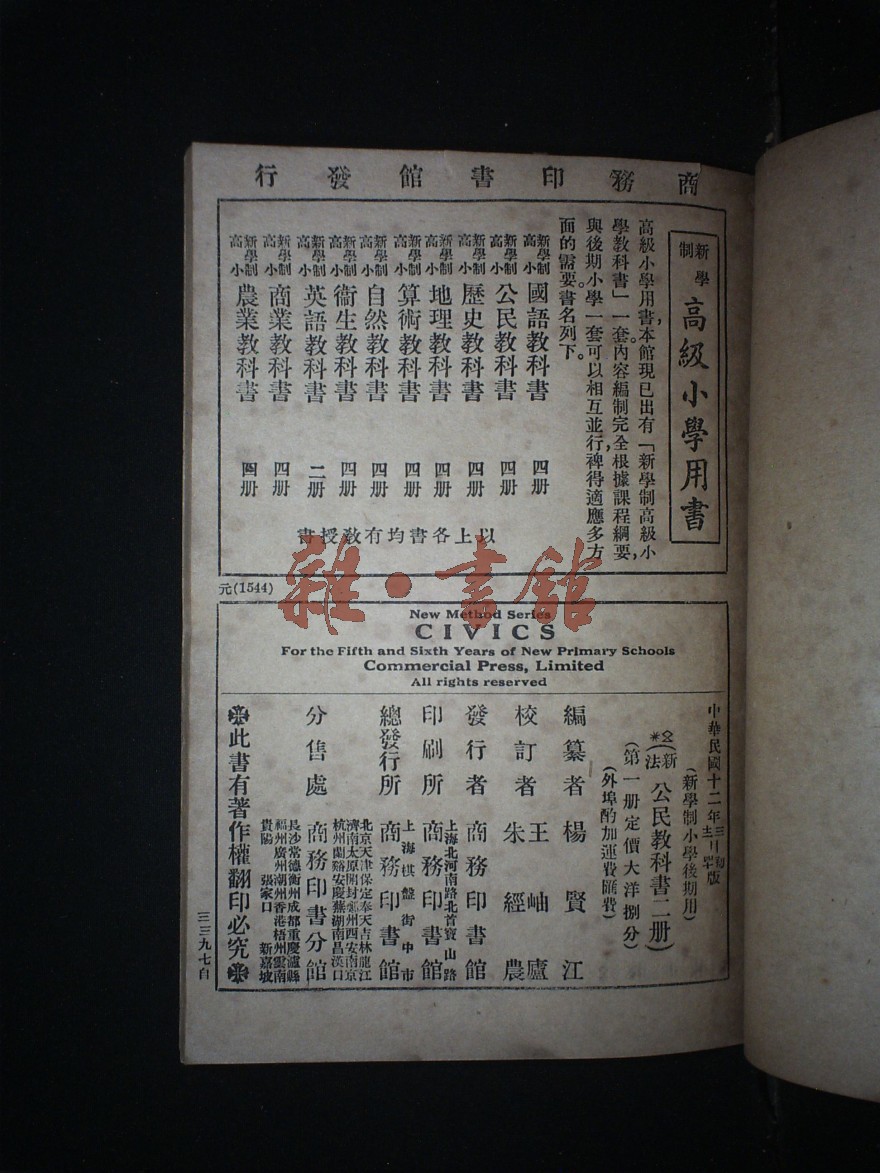 商務印書館發行
新學制
高級小學用書
高級小學用書,本館現已出有「新學制高級小
學教科書」一套。內容編制完全根據課程綱要,
與後期小學一套可以相互並行,裨得適應多方
面的需要。書名列下。
新學制高小 國語教科書 四册
新學制高小 公民教科書 四册
新學制高小 歷史教科書 四册
新學制高小 地理教科書 四册
新學制高小 算術教科書 四册
新學制高小 自然教科書 四册
新學制高小 衞生教科書 四册
新學制高小 英語教科書 二册
新學制高小 商業教科書 四册
新學制高小 農業教科書 四册
以上各書均有教授書
元(1544)
雜·書館
New Method Series
CIVICS
For the Fifth and Sixth Years of New Primary Schools
Commercial Press, Limited
All rights reserved
中華民國十二年三月初版
(新學制小學後期用)
(新法公民教科書二册)
(第一册定價大洋捌分)
(外埠酌加運費匯費)
編纂者 楊賢江
校訂者 王岫廬 朱經農
發行者 商務印書館
印刷所 上海北河南路北首寶山路 商務印書館
總發行所 上海棋盤街中市 商務印書館
分售處 商務印書分館
北京天津保定奉天吉林龍江
濟南太原開封鄭州西安南京
杭州蘭谿安慶蕪湖南昌漢口
長沙常德衡州成都重慶瀘縣
福州廣州潮州香港梧州雲南
貴陽 張家口 新嘉坡
此書有著作權翻印必究
三三九七自